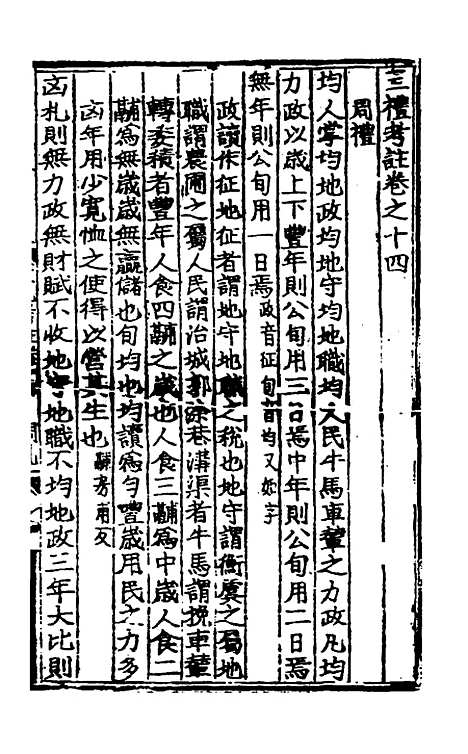 三禮考註卷之十四
周禮
均人掌均地政均地守均地職均人民牛馬車輦之力政凡均
力政以歲上下豐年則公旬用三日焉中年則公旬用二日焉
無年則公旬用一日焉政音征旬音均又如字
政讀作征地征者謂地守地職之稅也地守謂衡虞之屬地
職謂農圃之屬人民謂治城郭涂巷溝渠者牛馬謂挽車輦
轉委積者豐年人食四鬴之歲也人食三鬴為中歲人食二
鬴爲無歲歲無贏儲也旬均也均讀爲勻豐歲用民之力多
凶年用少寬恤之使得以營其生也鬴房甫反
凶札則無力政無財賦不收地守地職不均地政三年大比則